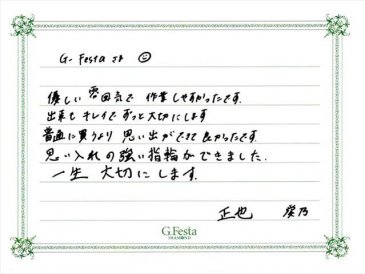 G. Festa さま
優しい雰囲気で作業しやすかったです.
出来も キレイで ずっと大切にします
普通に買うより 思い出ができて 良かったです.
思い入れの強い指輪ができました.
一生 大切にします.
正也 葵乃
G.Festa
DIAMOND